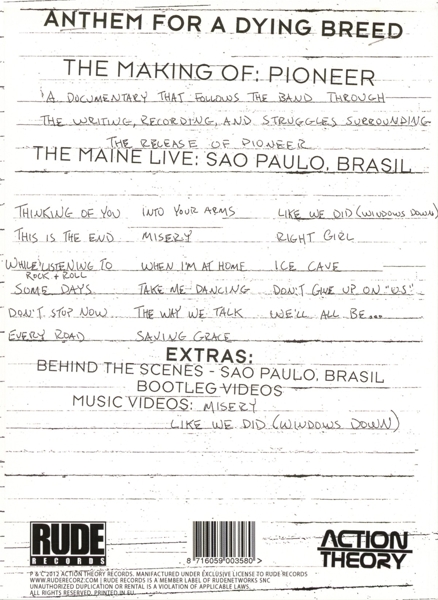 ANTHEM FOR A DYING BREED
THE MAKING OF: PIONEER
A DOCUMENTARY THAT FOLLOWS THE BAND THROUGH
THE WRITING, RECORDING, AND STRUGGLES SURROUNDING
THE RELEASE OF PIONEER
THE MAINE LIVE: SAO PAULO, BRASIL
THINKING OF YOU INTO YOUR ARMS LIKE WE DID (WINDOWS DOWN)
THIS IS THE END MISERY RIGHT GIRL
WHILE LISTENING TO ROCK + ROLL WHEN I'M AT HOME ICE CAVE
SOME DAYS TAKE ME DANCING DON'T GIVE UP ON "U.S."
DON'T STOP NOW THE WAY WE TALK WE'LL ALL BE...
EVERY ROAD SAVING GRACE
EXTRAS:
BEHIND THE SCENES - SAO PAULO, BRASIL
BOOTLEG VIDEOS
MUSIC VIDEOS: MISERY
LIKE WE DID (WINDOWS DOWN)
RUDE
RECORDS
8 716059 003580 >
ACTION
THEORY
P & C 2012 ACTION THEORY RECORDS. MANUFACTURED UNDER EXCLUSIVE LICENSE TO RUDE RECORDS
WWW.RUDERECORZ.COM | RUDE RECORDS IS A MEMBER LABEL OF RUDENETWORKS SNC
UNAUTHORIZED DUPLICATION OR RENTAL IS A VIOLATION OF APPLICABLE LAWS.
ALL RIGHTS RESERVED. PRINTED IN EU.